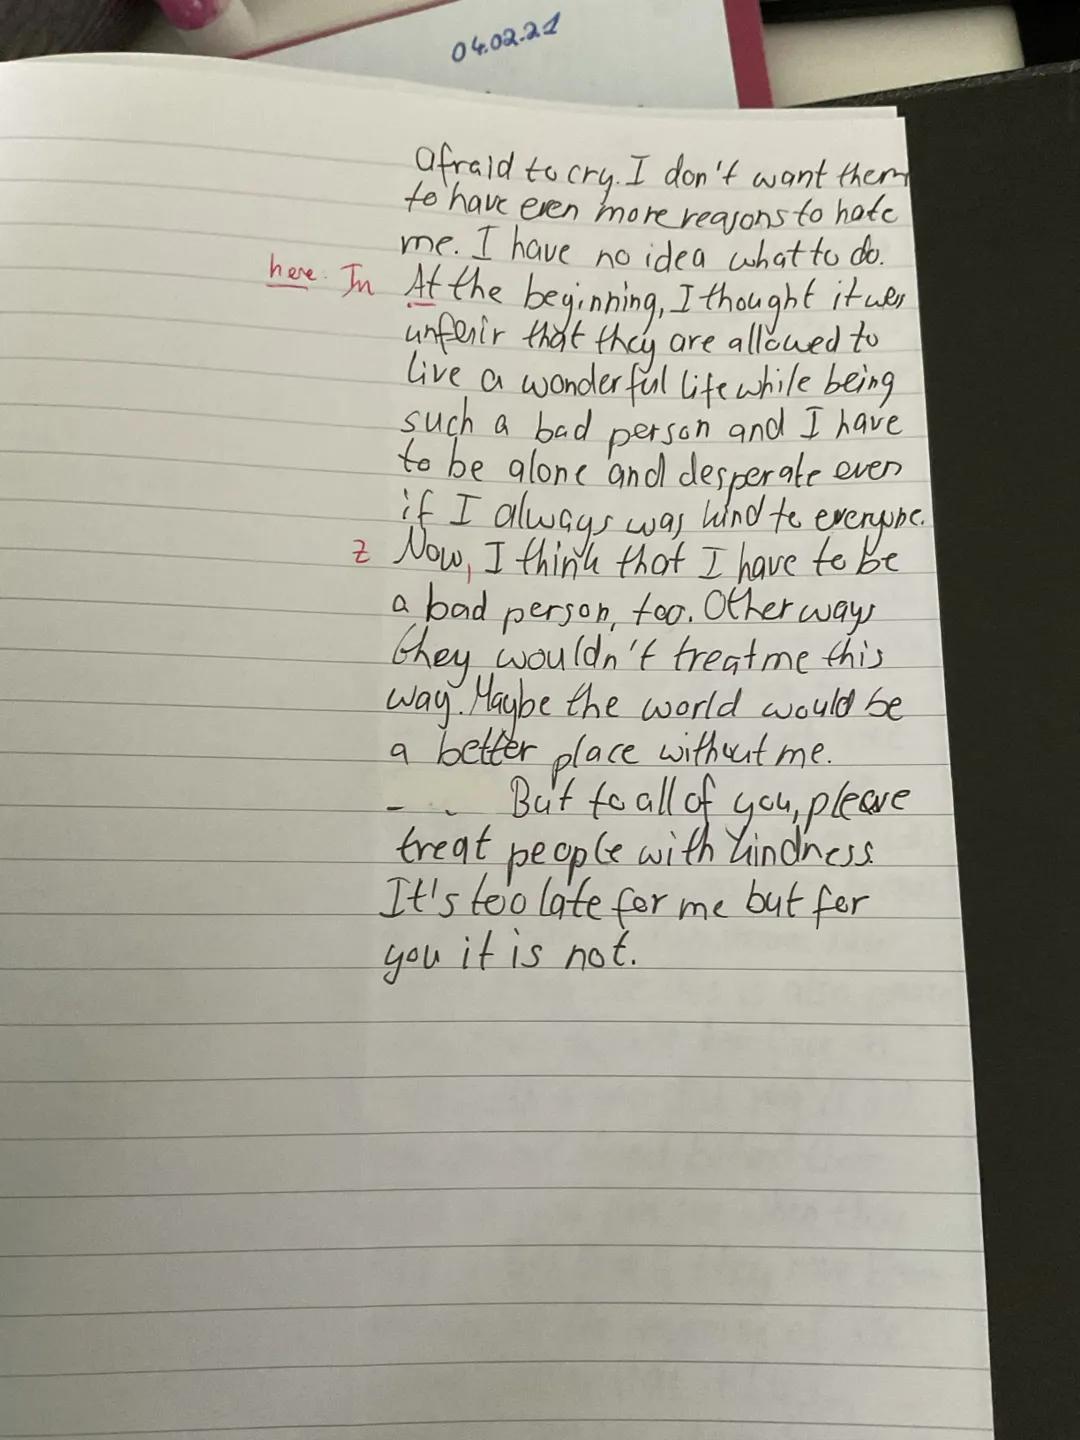 04.02.21
afraid to cry. I don't want them
to have even more reasons to hate
me. I have no idea what to do.
here. In At the beginning, I thought it was
unfair that they are allowed to
live a wonderful life while being
such a bad person and I have
to be alone and desperate even
if I always was kind to everyone.
Z Now, I think that I have to be
a bad person, too. Other ways
they wouldn't treat me this
way. Maybe the world would be
a better place without me.
But to all of you, please
treat people with kindness.
It's too late for me but for
you it is not.